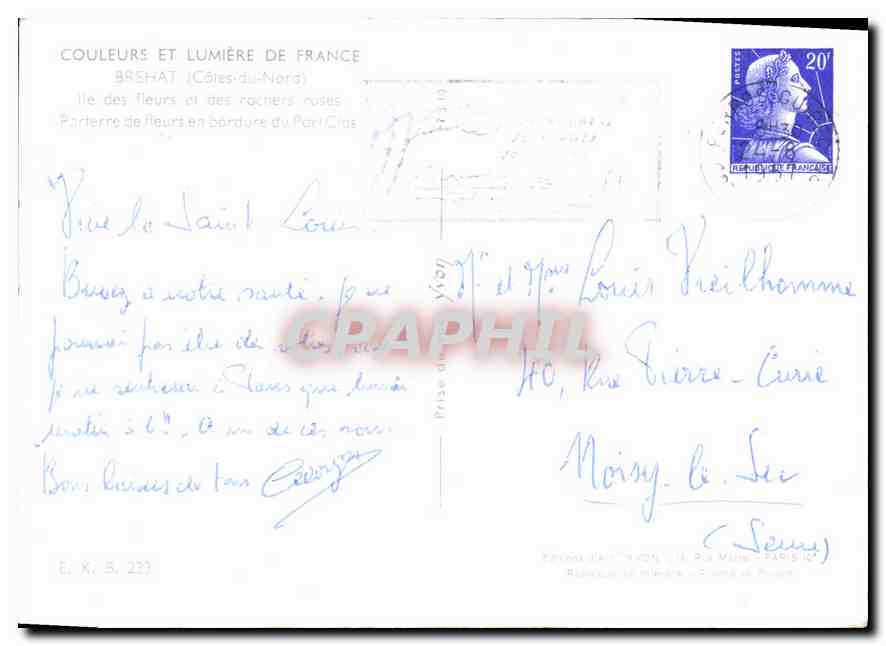 COULEURS ET LUMIÈRE DE FRANCE
BREHAT (Côtes-du-Nord)
Ile des fleurs et des rochers roses
Parterre de fleurs en bordure du Port Clos
POSTES
20F
REPUBLIQUE FRANÇAISE
Vive la Saint Louis
Buvez à notre santé. Je ne
pourrai pas être des vôtres
je ne rentrerai à Paris que lundi
matin à 6h. A un de ces soirs
Bons baisers de tous Georges
Prise de Yvon
Mr et Mme Louis Vieilhomme
40, Rue Pierre-Curie
Noisy-le-Sec
(Seine)
CPAPHIL
E. K. B. 233
PARIS 10